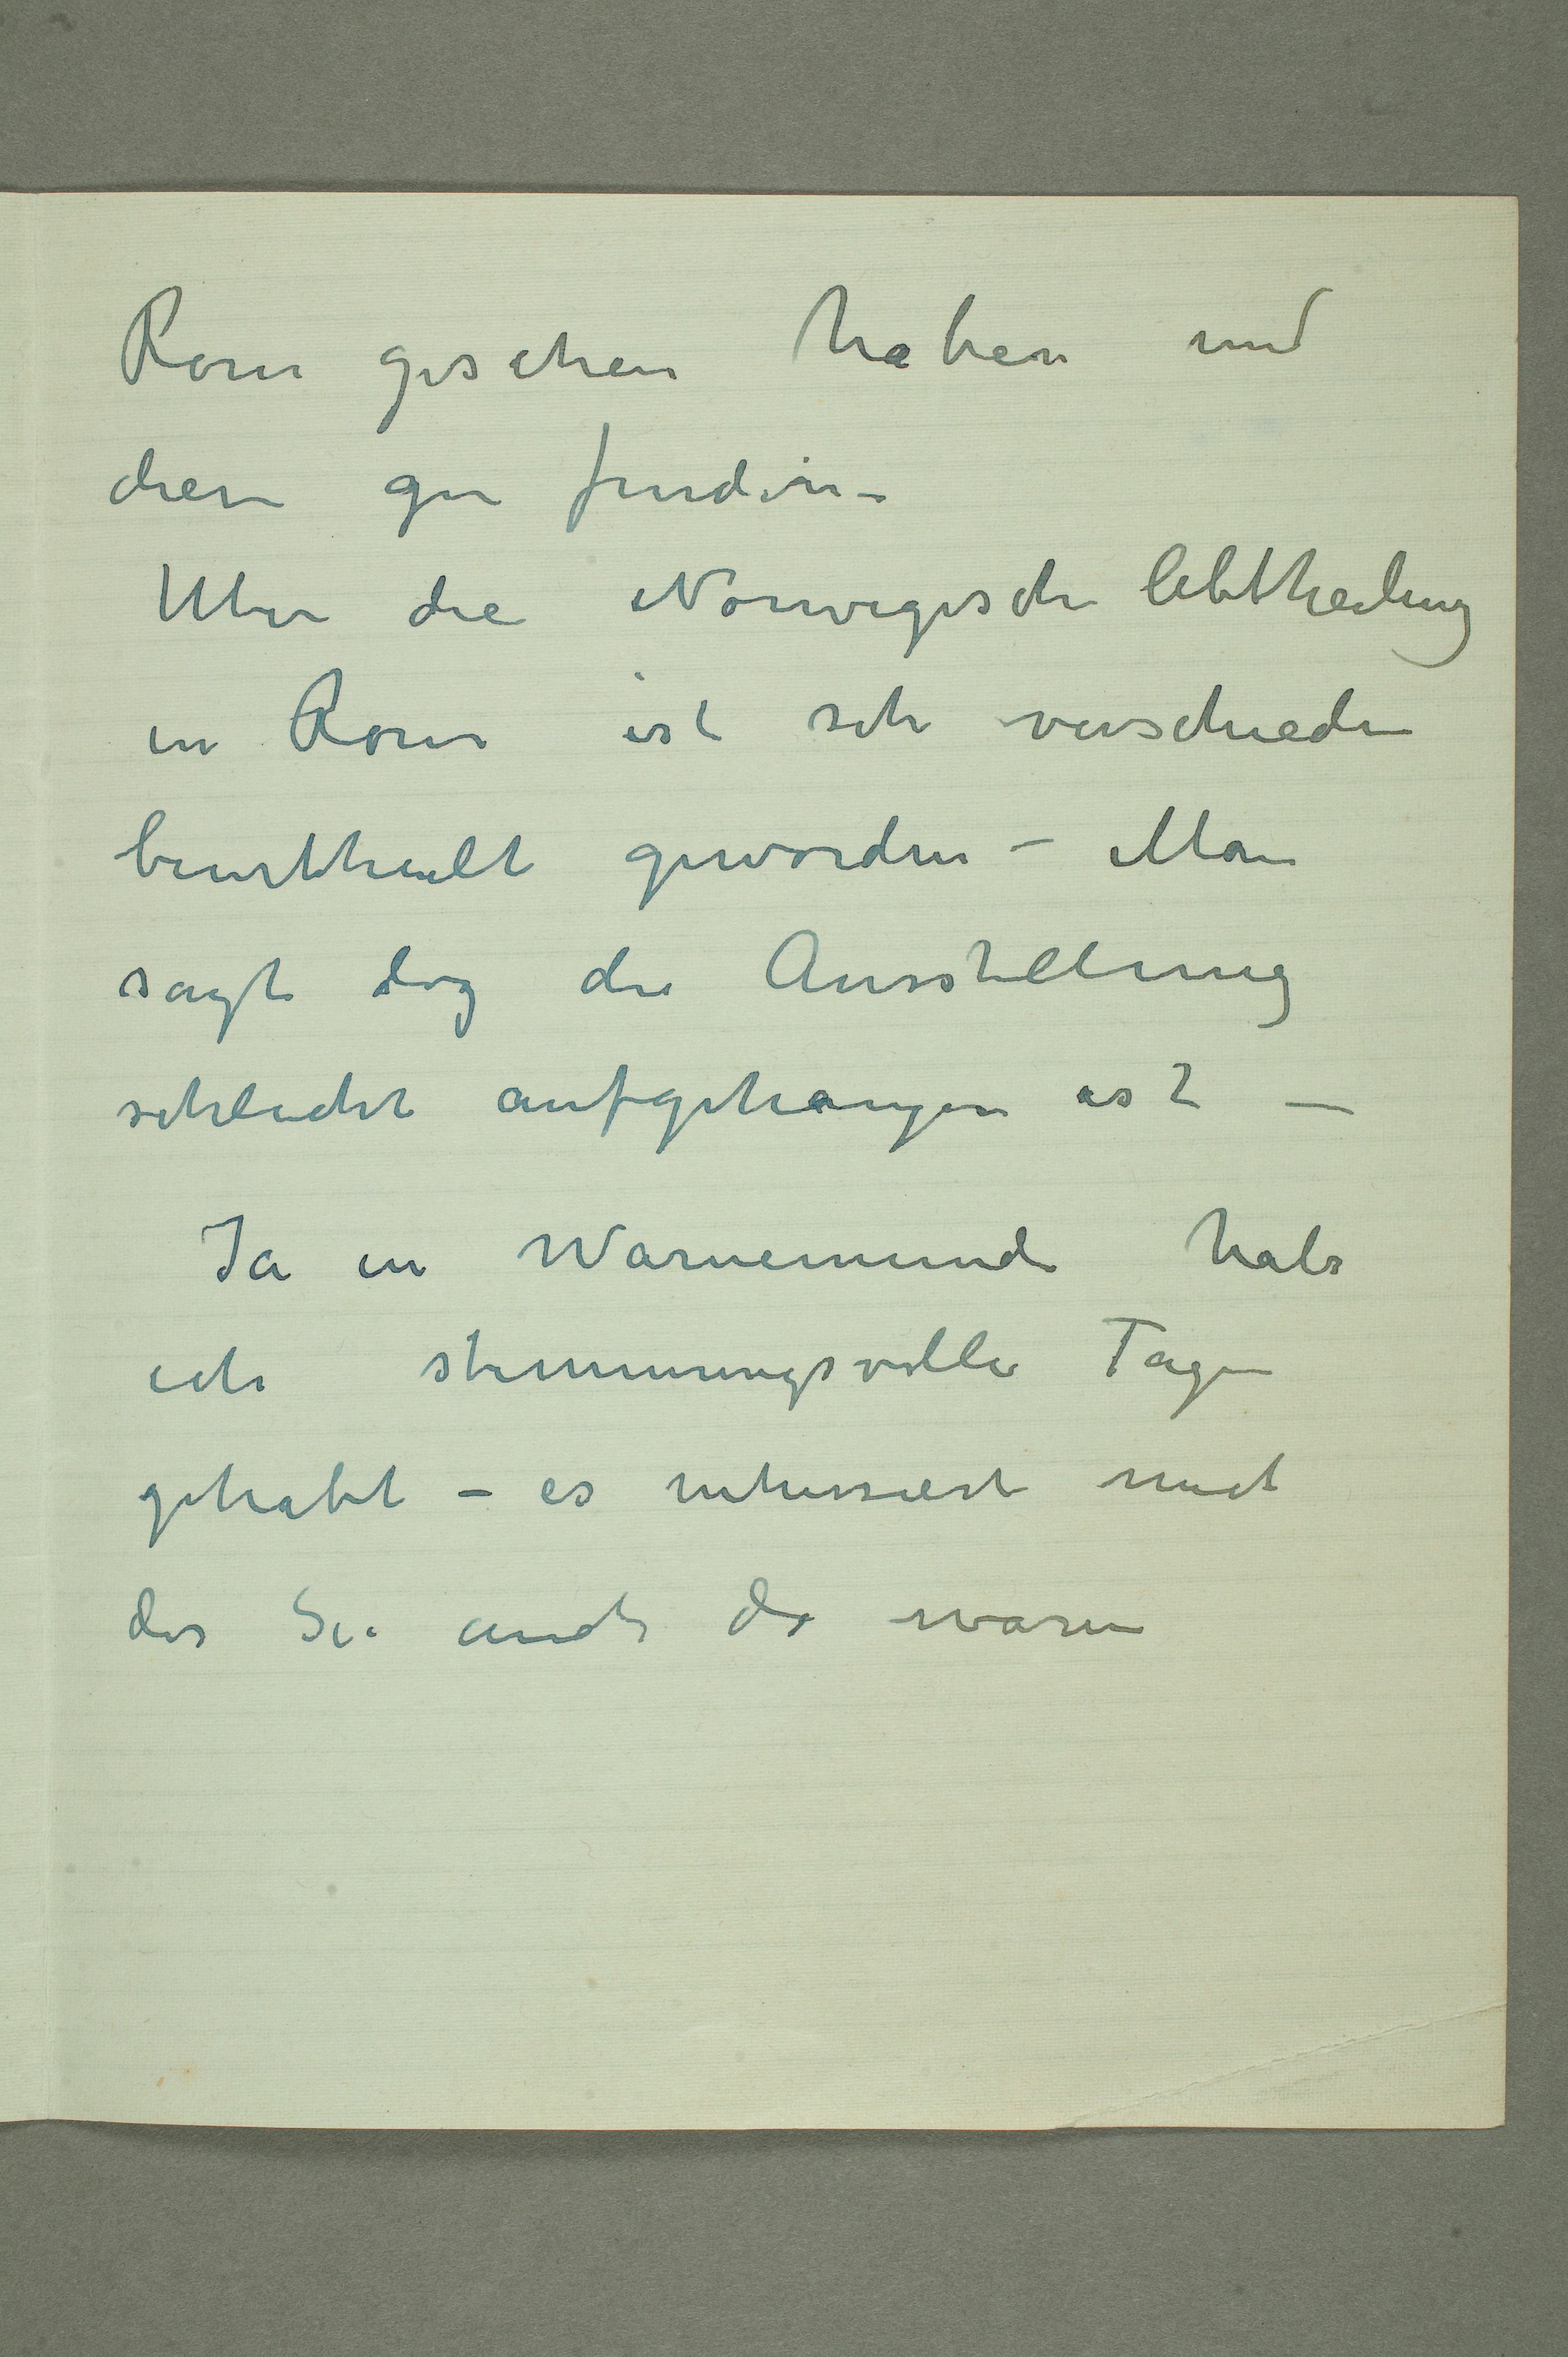 Rom gesehen haben und
diese gu finden –
Uber die Norwegische Abtheilung
in Rom ist sehr verschieden
beurtheilt geworden – Man
sagt dog die Ausstellung
schlecht aufgehangen ist –
Ja in Warnemunde habe
ich stimmungsvolle Tage
gehabt – es interessiert mich
das Sie auch da waren